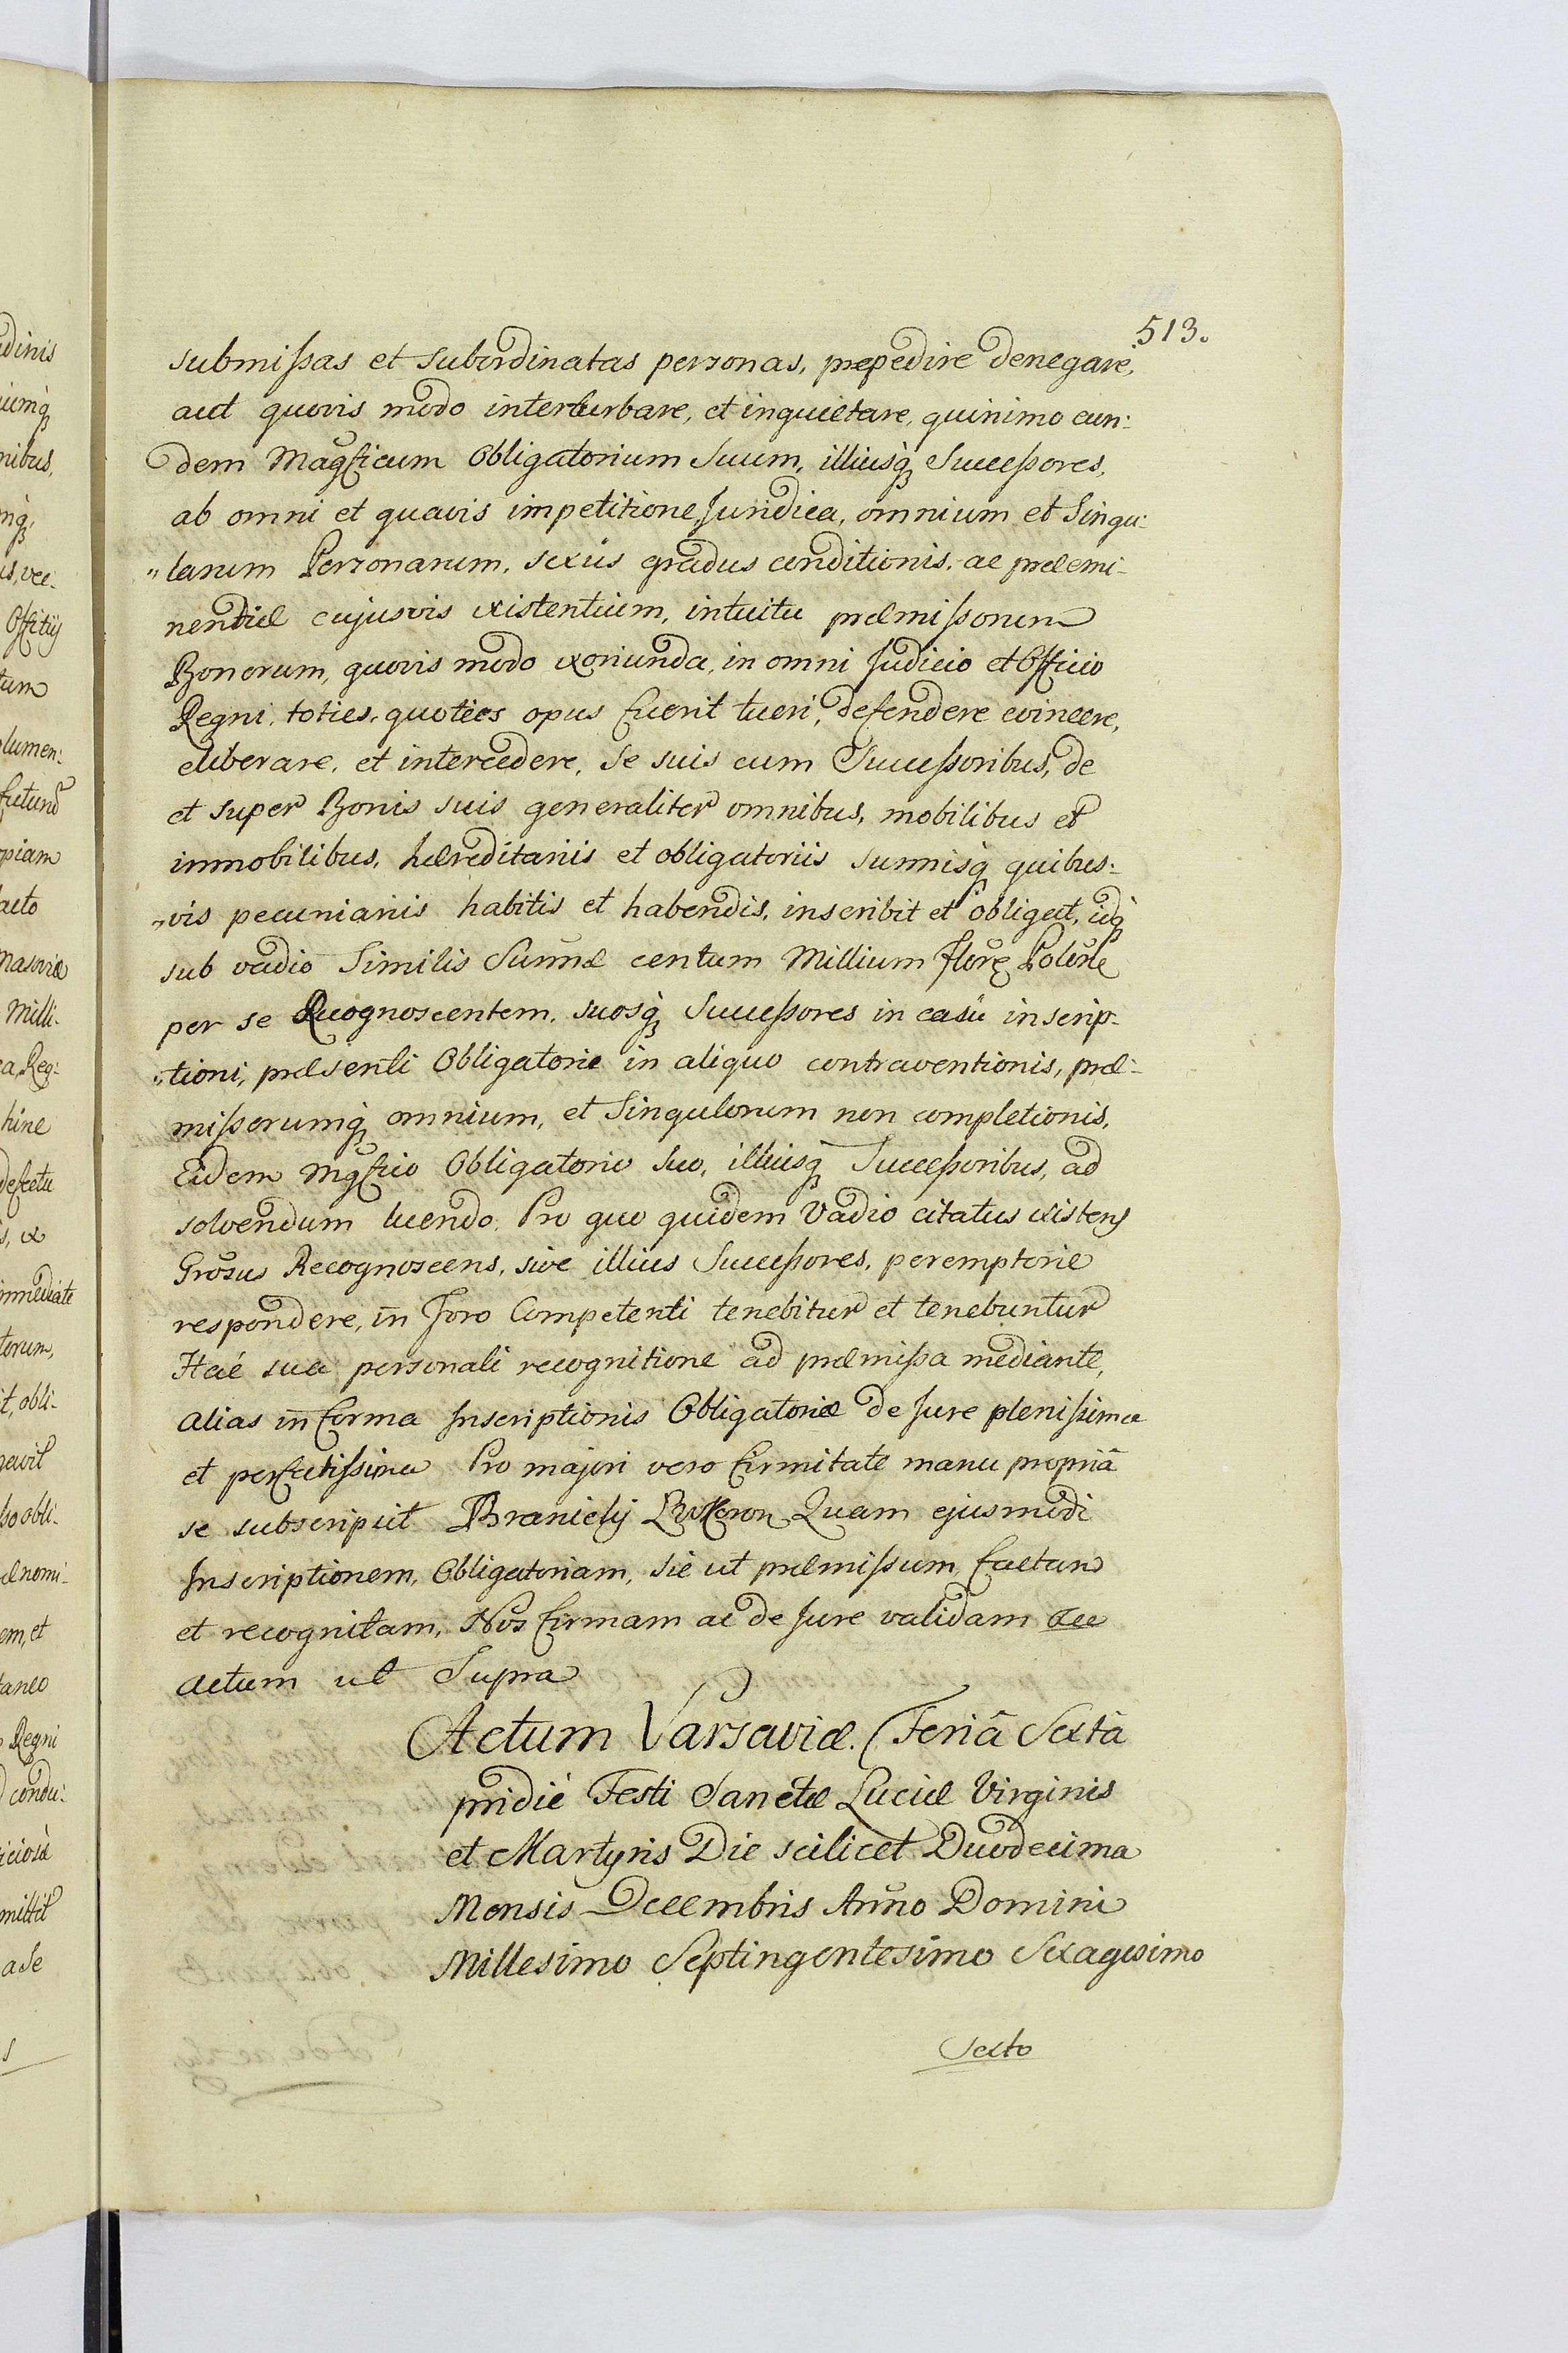 513.
submissas et subordinatas personas, præpedire denegare,
aut quovis modo interturbare, et inquietare, quinimo eun:
dem Magficum Obligatorium Suum, illiusq̀ Successores,
ab omni et quavis impetitione Juridica, omnium et Singu:
"larum Personarum, sexûs gradus conditionis, ac præemi-
nentiæ cujusvis existentium, intuitu præmissorum
Bonorum, quovis modo exoriunda, in omni Judicio et Officio
Regni, toties, quoties opus fuerit tueri, defendere evincere,
eliberare, et intercedere, Se suis cum Successoribus, de
et super Bonis suis generaliter omnibus, mobilibus et
immobilibus, hæreditariis et obligatoriis summisq̀ quibus:
"vis pecuniariis habitis et habendis, inscribit et obligat, idq̀
sub vadio Similis Sum̃æ centum Millium Flore Polõne
per se Recognoscentem, suosq̀ Successores in casû inscrip-
"tioni, præsenti Obligatoriæ in aliquo contraventionis, præ-
missorumq̀ omnium, et Singulorum non completionis,
Eidem Mgfico Obligatorio Suo, illiusq̀ Successoribus, ad
solvendum luendo. Pro quo quidem Vadio citatus existens
Grosus Recognoscens, sive illius Successores, peremptorie
respondere, in Foro Competenti tenebitur et tenebuntur
Hac sua personali recognitione ad præmissa mediante,
alias in forma Inscriptionis Obligatoriæ de Jure plenissima
et perfectissima Pro majori vero firmitate manu propriâ
se subscripsit Branicky Quam ejusmodi
Inscriptionem, Obligatoriam, sic ut præmissum, factam
et recognitam, Nos firmam ac de Jure validam
Actum ut Supra
Actum Varsaviæ. Feriâ Sextâ
pridiè Festi Sanctæ Luciæ Virginis
et Martyris Die scilicet Duodecima
Mensis Decembris Anno Domini
Millesimo Septingentesimo Sexagesimo
Sexto